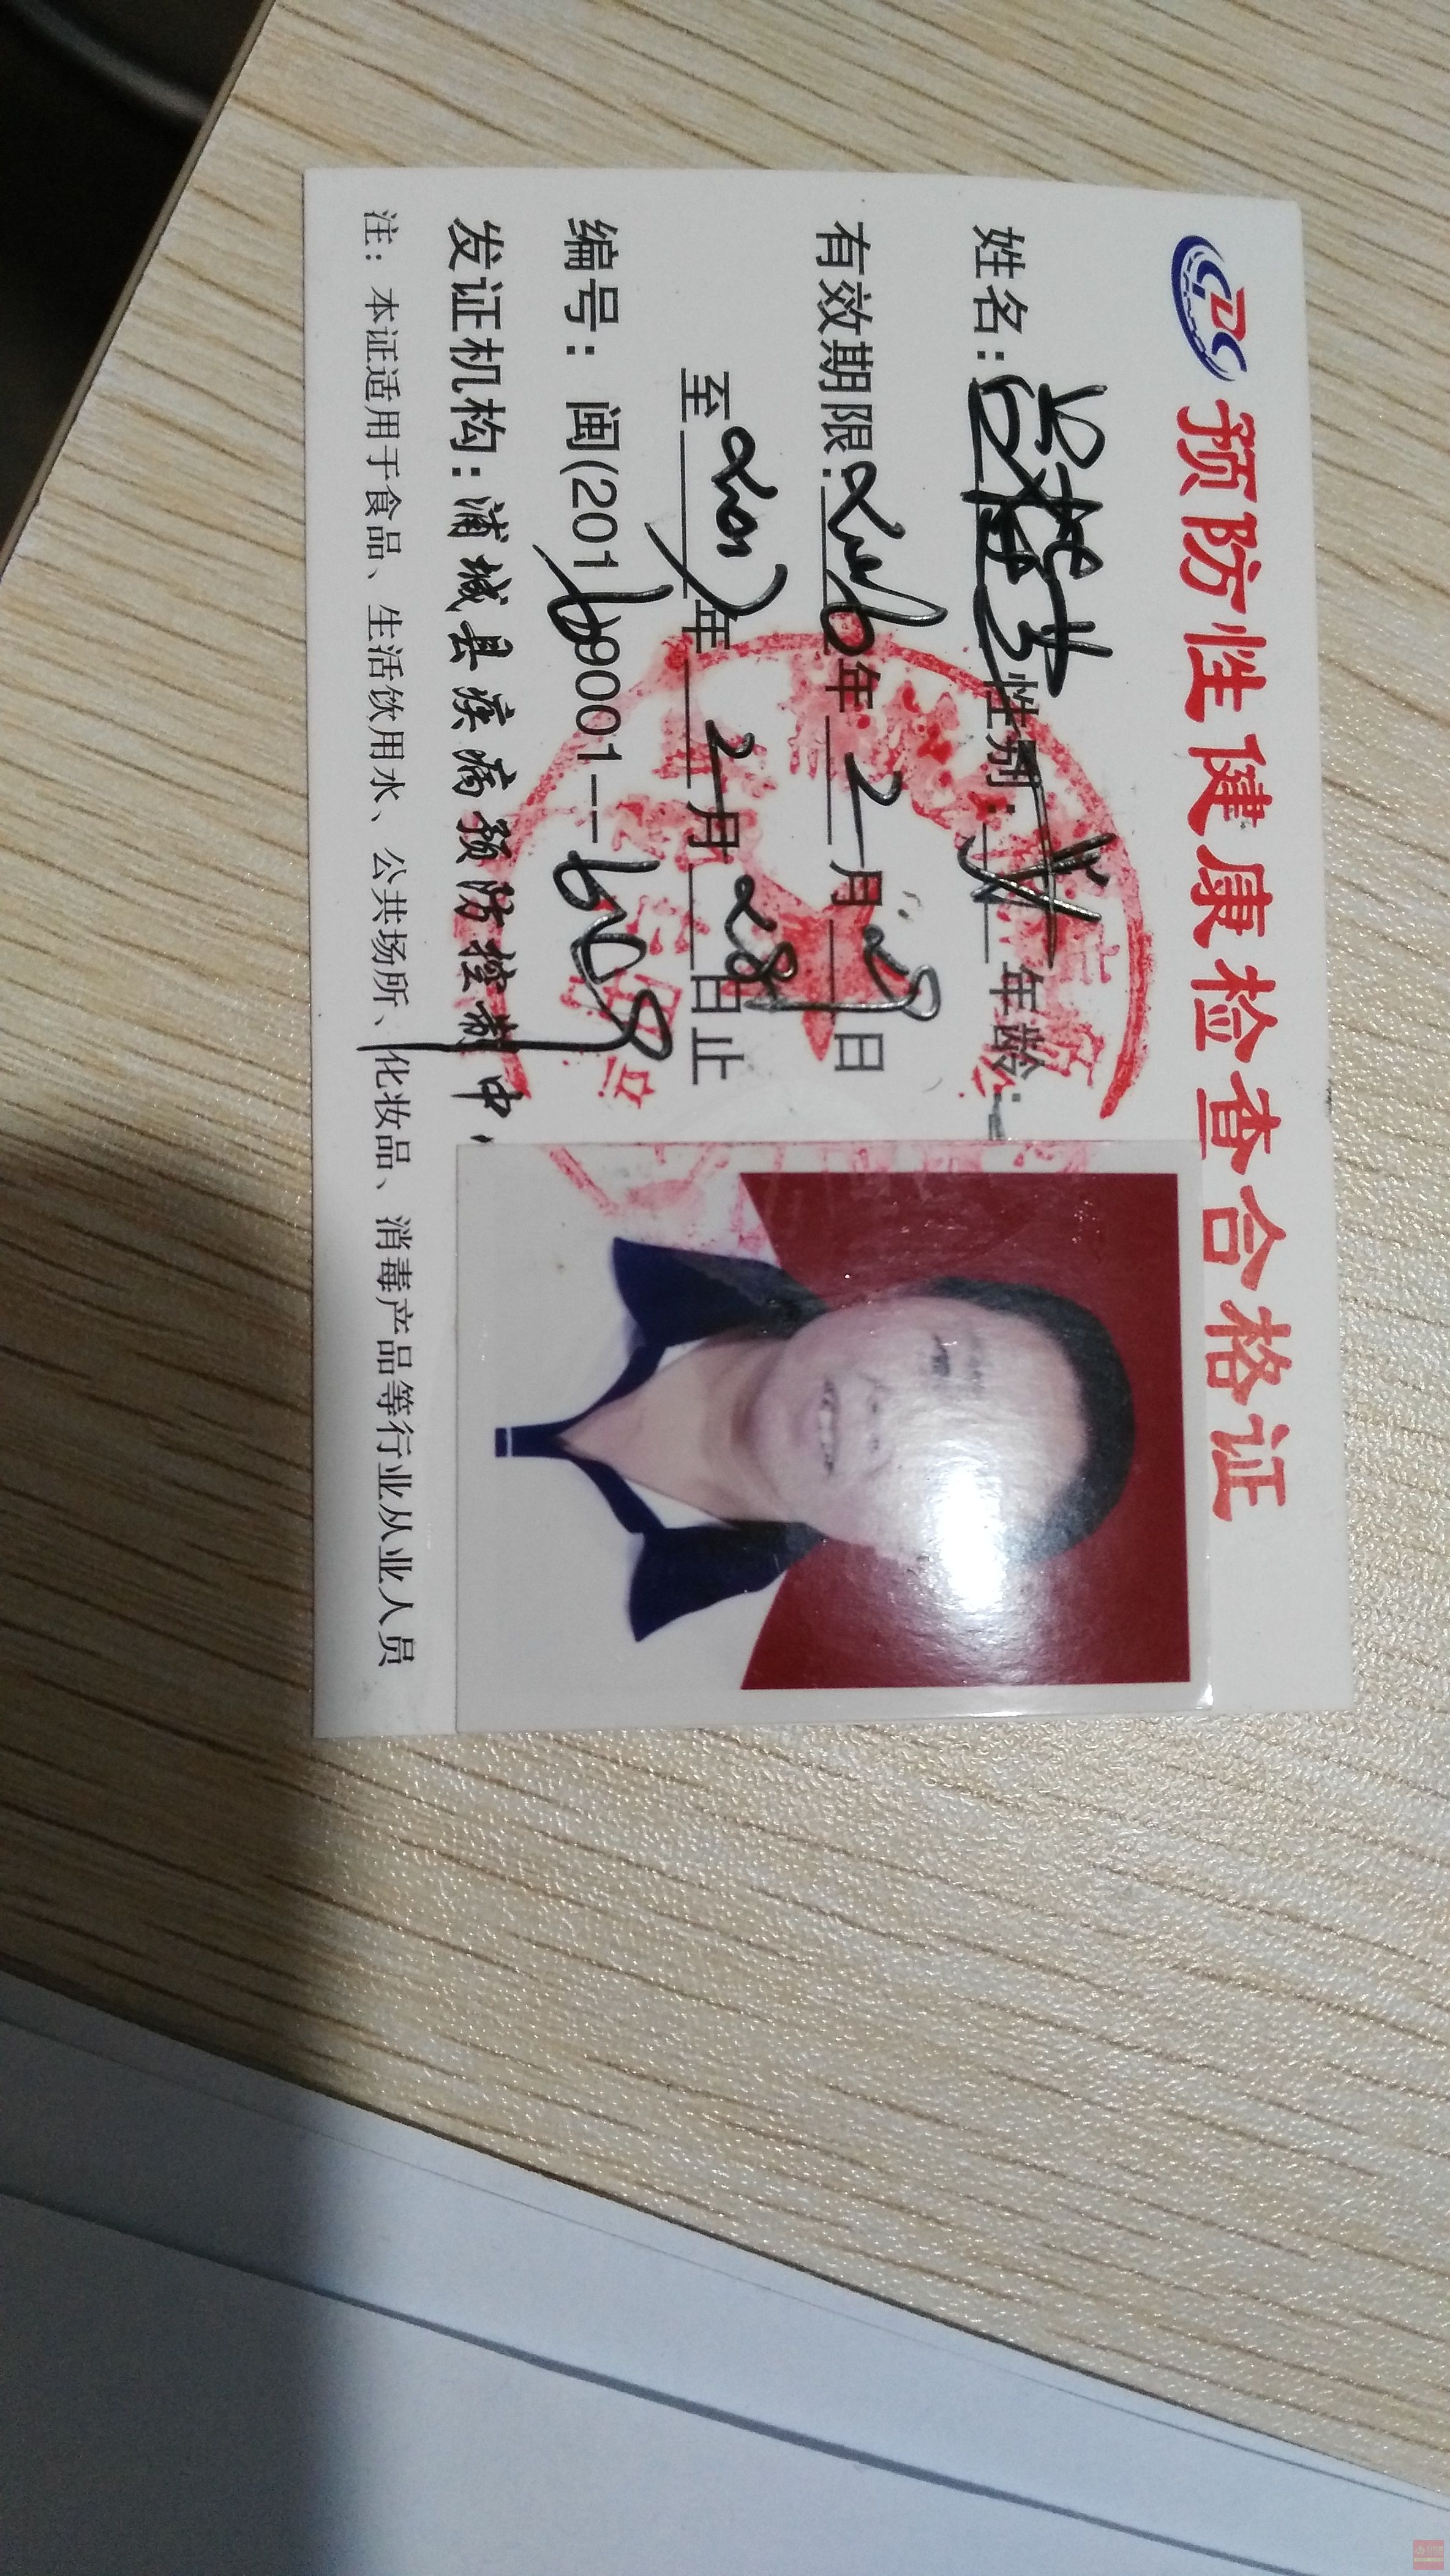 CDC 预防性健康检查合格证
姓名: 性别: 年龄:
有效期限: 2016年2月29日
至2017年2月28日止
编号: 闽(2016)9001--
发证机构: 浦城县疾病预防控制中
注: 本证适用于食品、生活饮用水、公共场所、化妆品、消毒产品等行业从业人员